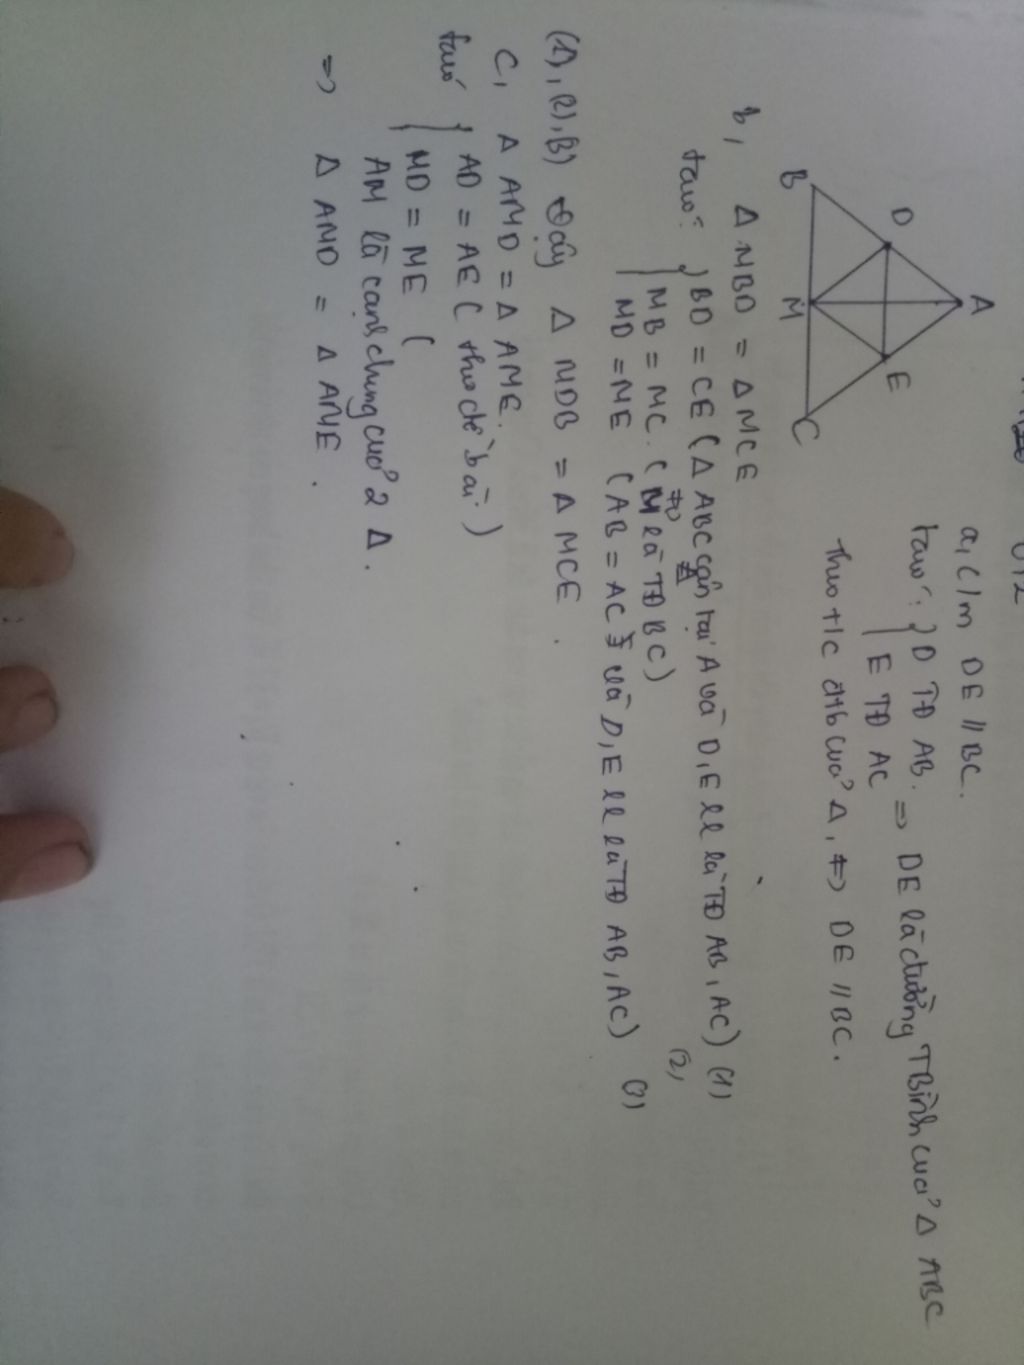 A
D
E
B
M
C
a, C/m DE // BC.
taco: } D TĐ AB. => DE là đường TBình của Δ ABC
E TĐ AC
theo t/c đtb của Δ, => DE // BC.
b, Δ MBD = Δ MCE
taco: } BD = CE ( Δ ABC cân tại A và D, E ll là TĐ AB, AC) (1)
MB = MC. ( M là TĐ BC) (2)
MD = ME ( AB = AC và D, E ll là TĐ AB, AC) (3)
(1), (2), (3) Vậy Δ MDB = Δ MCE.
C, Δ AMD = Δ AME.
taco } AD = AE ( theo đề bài )
MD = ME (
AM là cạnh chung của 2 Δ.
=> Δ AMD = Δ AME.